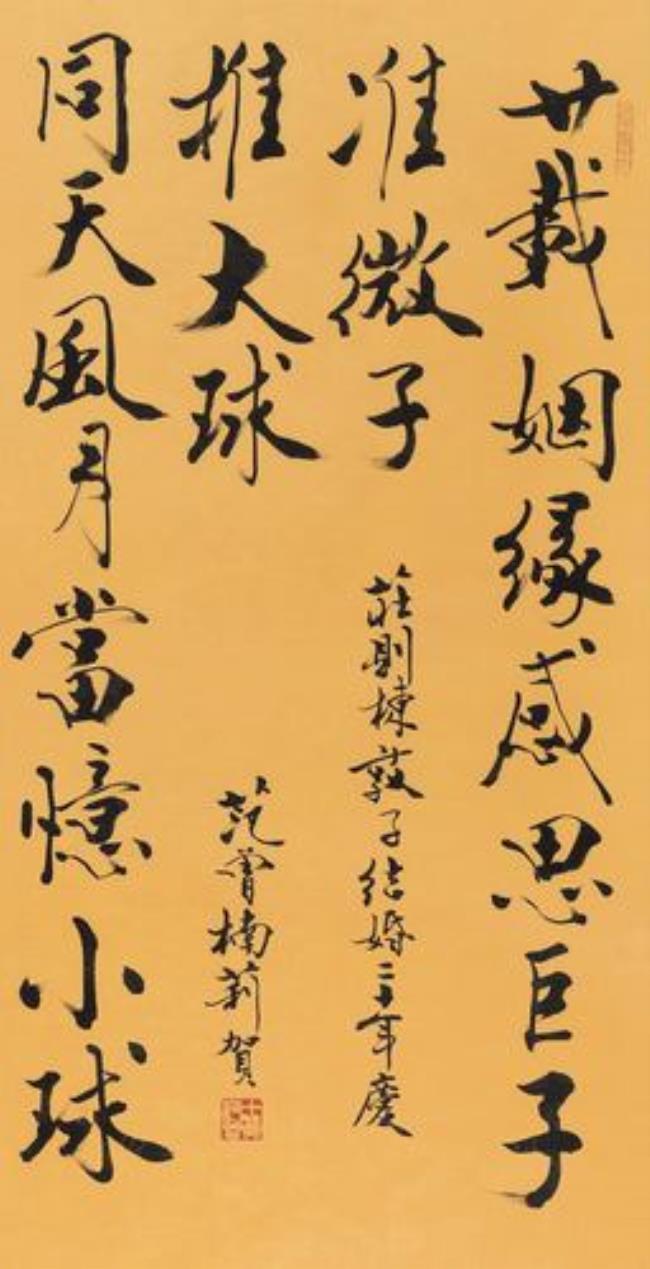 廿載姻緣感思巨子
准微子
莊則棟敦子結婚二十年慶
推大球
范曾楠莉賀
同天風月當憶小球